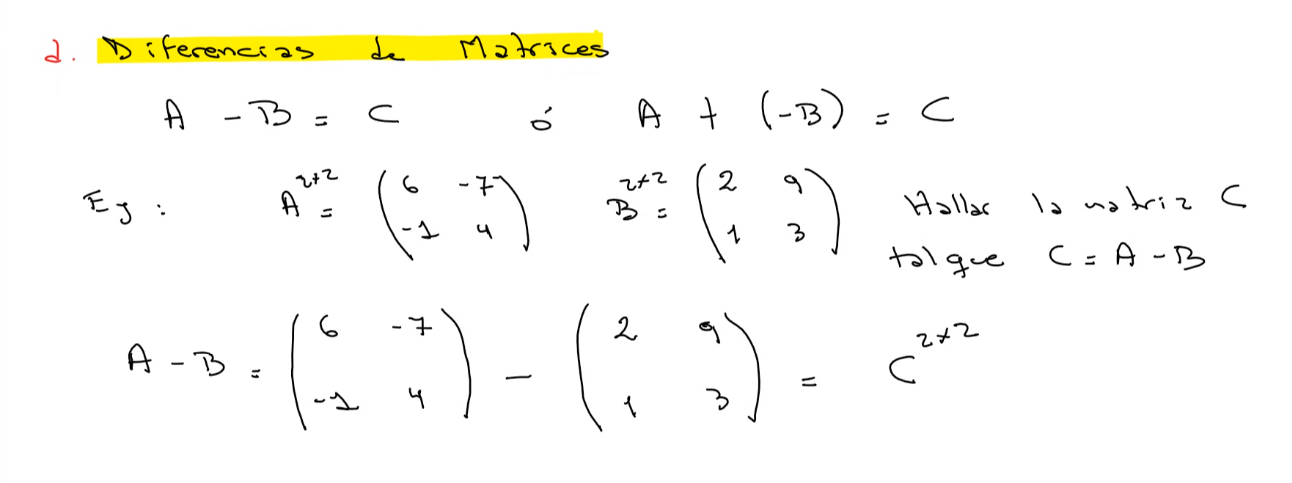 2. Diferencias de Matrices
A - B = C ó A + (-B) = C
Ej: A^{2x2} = (6 -7; -1 4) B^{2x2} = (2 9; 1 3) Hallar la matriz C
tal que C = A - B
A - B = (6 -7; -1 4) - (2 9; 1 3) = C^{2x2}